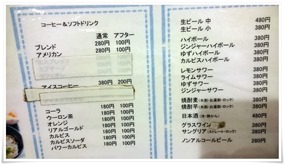 コーヒー&ソフトドリンク
通常 アフター
ブレンド 280円 100円
アメリカン 280円 100円
アイスコーヒー 380円 200円
コーラ 180円 100円
ウーロン茶 180円 100円
オレンジ 180円 100円
リアルゴールド 180円 100円
カルピス 180円 100円
カルピスソーダ 180円 100円
パワーカルピス 180円 100円
生ビール 中 480円
生ビール 小 380円
ハイボール 380円
ジンジャーハイボール 380円
ゆずハイボール 380円
カルピスハイボール 380円
レモンサワー 380円
ライムサワー 380円
ゆずサワー 380円
ジンジャーサワー 380円
焼酎麦 380円
焼酎芋 380円
日本酒 480円
グラスワイン
サングリア
ノンアルコールビール 280円